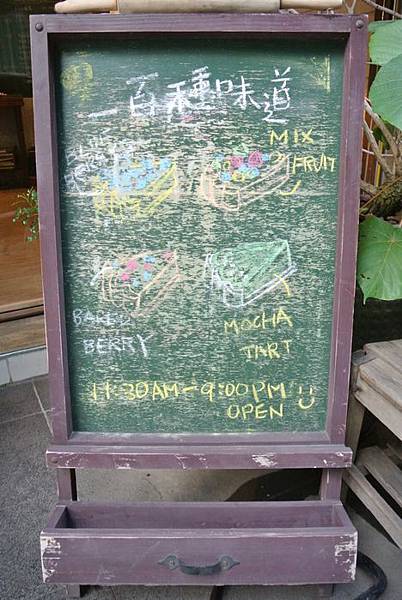 一百種味道
MIX
FRUIT
BAKED
BERRY
MOCHA
TART
11:30AM-9:00PM
OPEN